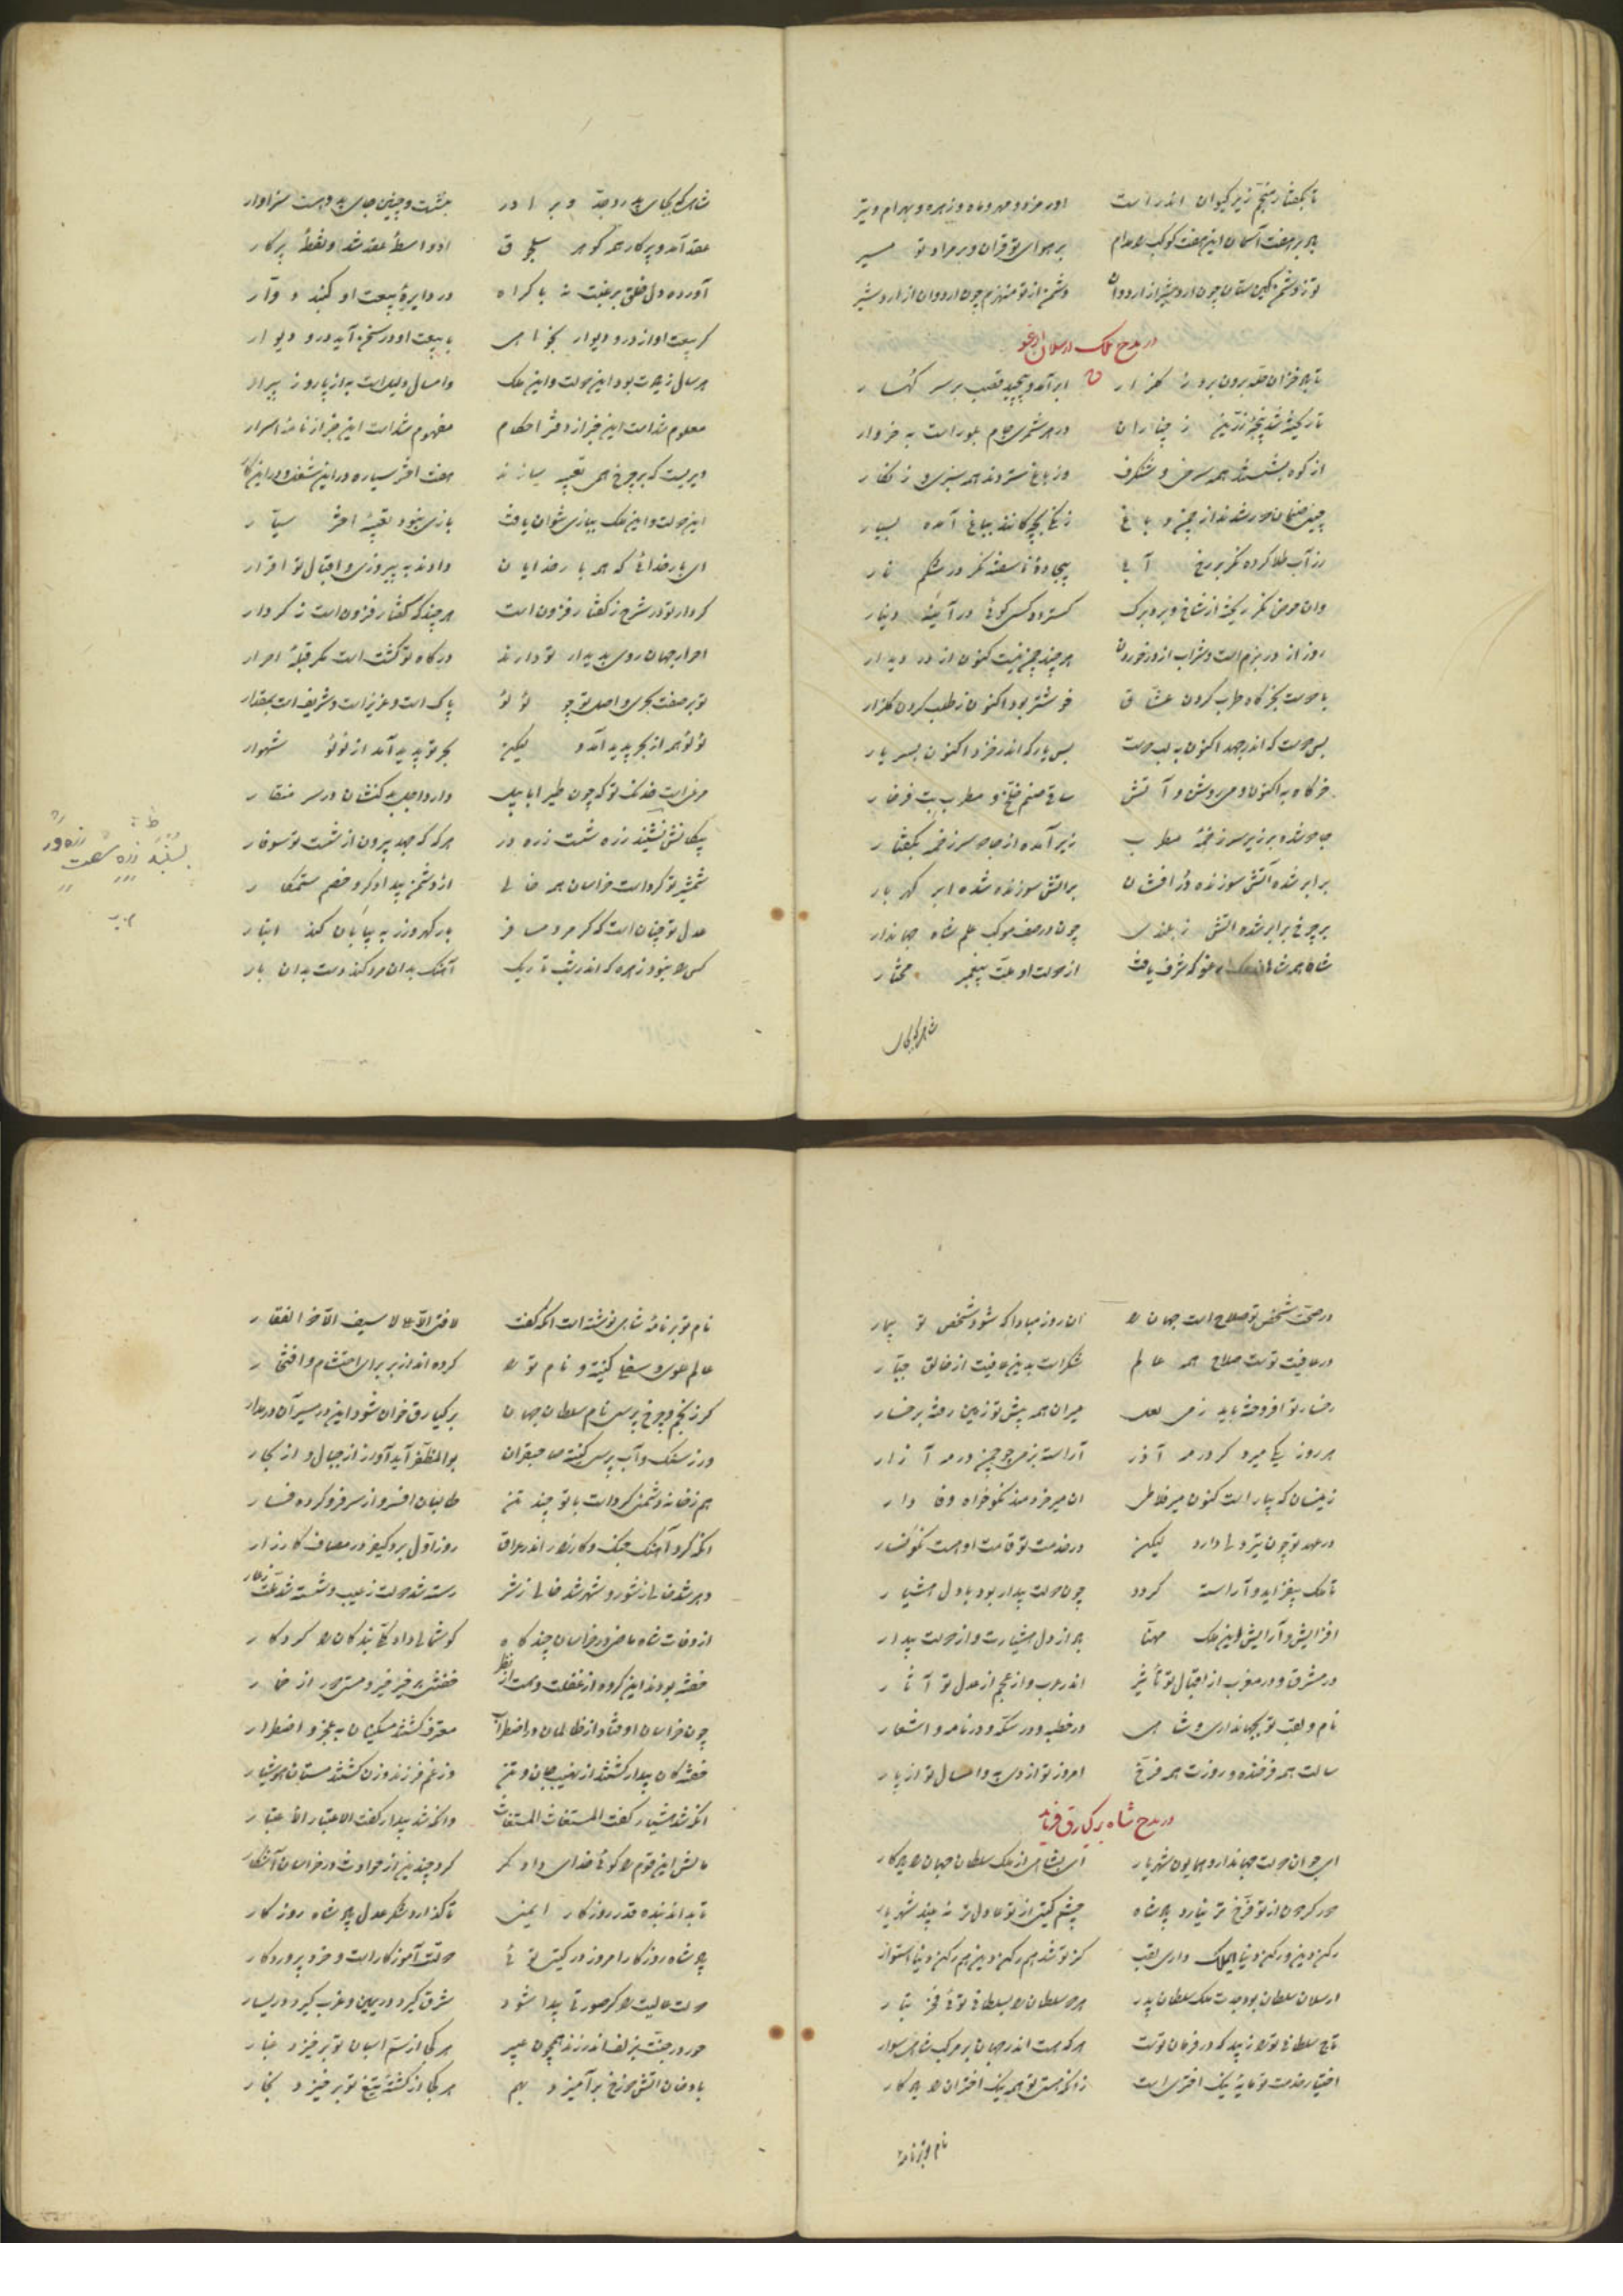 تا بگفتار منجم زیر کیوان اندر است اورمزد و مهر و ماه و زهره و بهرام و تیر
بر هفت آسمان این هفت کوکب مدام بر هوای تو قران و بر مراد تو مسیر
تو ز دشمن کین ستان چون اردشیر از اردوان دشمن از تو منهزم چون اردوان از اردشیر
در مدح ملک ارسلان ارغو
تا باد خزان حله برون برد ز گلزار ابر آمد و پیچید قصب بر سر کهسار
تا ریخته شد پنجه زرین ز چناران در هر شمری جام بلور است به خروار
از کوه بشستند همه سرخی و شنگرف وز باغ ستردند همه سبزی و زنگار
چینی صنمان دور شدند از چمن و باغ زنگی بچگانند بباغ آمده بسیار
زر آب طلا کرده مگر بر رخ آبی بیجاده ناسفته مگر در شکم نار
وان حوض مگر ریخته از شاخ و بر و برگ گسترد کسی گوئی در آینه دینار
روز از در بزم است و شراب از در خوردن هر چند چمن نیست کنون از در دیدار
با دوست بخرگاه طرب کردن عشاق خوشتر بود اکنون ز طلب کردن گلزار
بس دست که اندر جهد اکنون به لب دست بس یار که اندر خزد اکنون ببر یار
خرگاه به اکنون و می روشن و آتش ساقی صنم خلخ و مطرب بت فرخار
جا دو شده بر زیر سر زخمه مطرب زیر آمده از جادو سر زخمه بگفتار
بر ابر شده آتش سوزنده در افشان بر آتش سوزنده شده ابر گهربار
بر چرخ برابر شده آتش ز بلندی چون در صف موکب علم شاه جهاندار
شاه همه شاهان ملک ارغو که شرف یافت از دولت او امت پیغمبر مختار
شاهی که بجای
شاهی که بجای پدر و جد و برادر بنشست و چنین جای بدو هست سزاوار
عقد آمد و پرگار همه گوهر سلجوق او واسطه عقد شد و نقطه پرگار
آورده دل خلق برغبت نه باکراه در دایره بیعت او گنبد دوار
گر بیعت او از در و دیوار بخواهی با بیعت او در سخن آید در و دیوار
هر سال زیادت بود این دولت و این ملک و امسال دلیل است به از پار و ز پیرار
معلوم شد است این خبر از دفتر احکام مفهوم شد است این خبر از نامه اسرار
دیریست که بر چرخ همی تعبیه سازند هفت اختر سیاره در این شغل و در این کار
این دولت و این ملک ببازی نتوان یافت بازی نبود تعبیه اختر سیار
ای بار خدائی که همه بار خدایان دادند به پیروزی و اقبال تو اقرار
کردار تو در شرح ز گفتار فزون است هر چند که گفتار فزون است ز کردار
احرار جهان روی به دیدار تو دارند درگاه تو گشت است مگر قبله احرار
تو بر صفت بحری و اصل تو چو لؤلؤ پاک است و عزیز است و شریف است بمقدار
لؤلؤ همه از بحر پدید آمد و لیکن بحر تو پدید آمد از لؤلؤ شهوار
مرغی است خدنگ تو که چون طیر ابابیل دارد اجل بدکنشان در سر منقار
پیکانش نشیند زره شست زره در هر گه که جهد بیرون از شست تو سوفار
شمشیر تو کرد است خراسان همه خالی از دشمن بیدادگر و خصم ستمکار
عدل تو چنان است که گر مرد مسافر بار گهر و زر به بیابان کند انبار
کس را نبود زهره که اندر شب تاریک آهنگ بدان مرد کند دست بدان بار
ظ
در صحت شخص تو صلاح است جهان را آن روز مبادا که شود شخص تو بیمار
در عافیت تو است صلاح همه عالم شکر است بدین عافیت از خالق جبار
رخسار تو افروخته باید ز می لعل میران همه پیش تو زمین رفته برخسار
هر روز یکی میرد گر در مه آذر آراسته بزمی چو چمن در مه آزار
زینسان که بپار است کنون میر خاطر آن میر خردمند نکوخواه وفادار
در عهد تو چون تیر دلی دارد لیکن در خدمت تو قامت او هست نگونسار
تا ملک بیفزاید و آراسته گردد چون دولت بیدار بود با دل هشیار
افزایش و آرایش این ملک مهیا هم از دل هشیار است و از دولت بیدار
در مشرق و در مغرب از اقبال تو تأثیر اندر عرب و از عجم از عدل تو آثار
نام و لقب تو بجهانداری و شاهی در خطبه و در سکه و در نامه و اشعار
سالت همه فرخنده و روزت همه فرخ امروز تو از دی به و امسال تو از پار
در مدح شاه برکیارق فرماید
ای جوان دولت جهاندار و همایون شهریار ای بشاهی از ملک سلطان جهان را یادگار
دور گردون از تو فرخ تر نیارد پادشاه چشم گیتی از تو عادل تر نبیند شهریار
رکن دین و رکن دنیا ای ملک داری لقب کز تو شد هم رکن دین هم رکن دنیا استوار
ارسلان سلطان بود جدت ملک سلطان پدر هر دو سلطان را بسلطانی توئی فخر تبار
تاج سلطانی تو را زیبد که در فرمان توست هر که هست اندر جهان بر مرکب شاهی سوار
اختیار خدمت تو مایه نیک اختری است زانکه هستی تو همه نیک اختران را یادگار
نام تو بر نامه
نام تو بر نامه شاهی نوشته است آنکه گفت لا فتی الا علی لا سیف الا ذوالفقار
عالم علوی و سفلی کنیه و نام تو را کرده اند از بر برای احتشام و افتخار
گر ز نجم و چرخ پرسی نام سلطان جهان برکیارق خوان شود این در مسیر آن در مدار
ور ز سنگ و آب پرسی کنیه صاحبقران بوالمظفر آید آواز از جبال و از بحار
هم زخانه دشمنی کرد است با تو چند تن طالبان افسر و از سر فرو کرده فسار
آنکه کرد آهنگ جنگ و کارزار اندر عراق روز اول برد کیفر در مصاف کارزار
دهر شد خالی ز شور و شهر شد خالی ز شر رسته شد دولت ز عیب و شسته شد ملت ز عار
از وفات شاه ماضی در خراسان چند گاه گوشمالی داد یکی بندگان را کردگار
خفته بودند این گروه از غفلت و مست از بطر خفتشی بر خیر خیر و مستی از خمار
چون خراسان اوفتاد از ظالمان در اضطراب معترف گشتند مسکینان به عجز و اضطرار
خفتگان بیدار گشتند از نهیب جان و تن وز غم فرزند و زن گشتند مستان هوشیار
آنکه شد هشیار گفت المستغاث المستغاث وانکه شد بیدار گفت الاعتبار الاعتبار
مالش این قوم را گوئی خدای دادگر کرد چندین از حوادث در خراسان آشکار
تا بداند بنده قدر روزگار ایمنی تا گذارد شکر عدل پادشاه روزگار
پادشاه روزگار امروز در گیتی توئی دولتت آموزگار است و خرد پروردگار
دولت عالیت را گر صورتی پیدا شود شرق گیرد در یمین و غرب گیرد در یسار
حور در جنت بزلف اندر زند همچون عبیر هر کجا از سم اسبان تو برخیزد غبار
با دخان آتش دوزخ برآمیزد بهم هر کجا از کشته تیغ تو برخیزد بخار